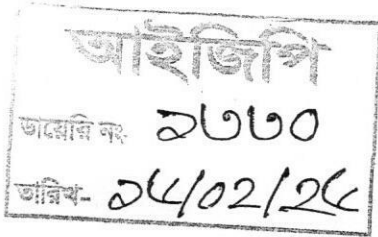 আইজিপি
ডায়েরি নং- ১৩৩০
তারিখ- ১৫/০২/২৫